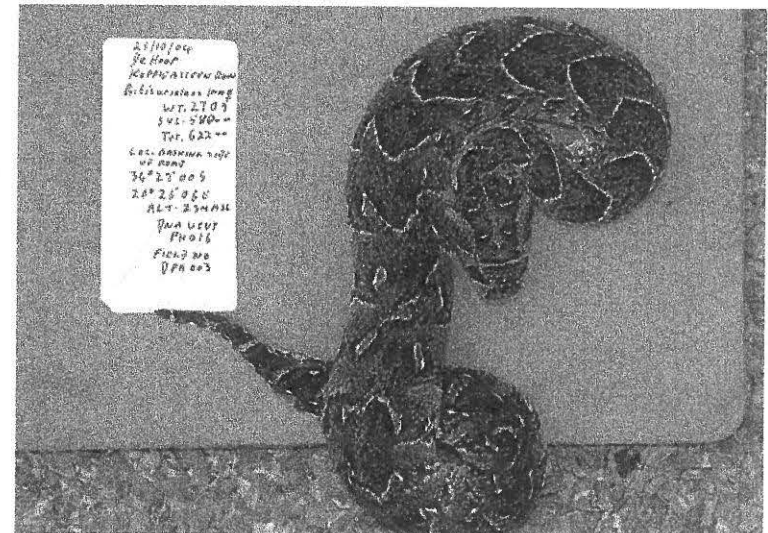 21/10/04
De Hoop
Bitis arietans
WT. 270g
SVL-580mm
Tot. 622mm
Loc. Basking side
of road
34° 25' 00 S
20° 25' 06 E
ALT-23MASL
DNA VEUT
PH016
Field no
DPA 003